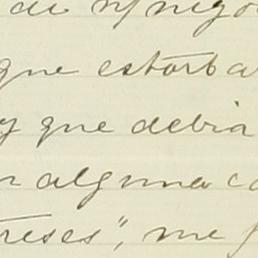 que estorba
y que debia
alguna co
treses", me